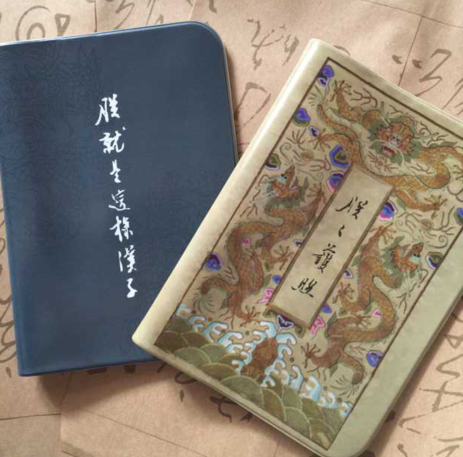 朕就是這樣漢子
朕之護照